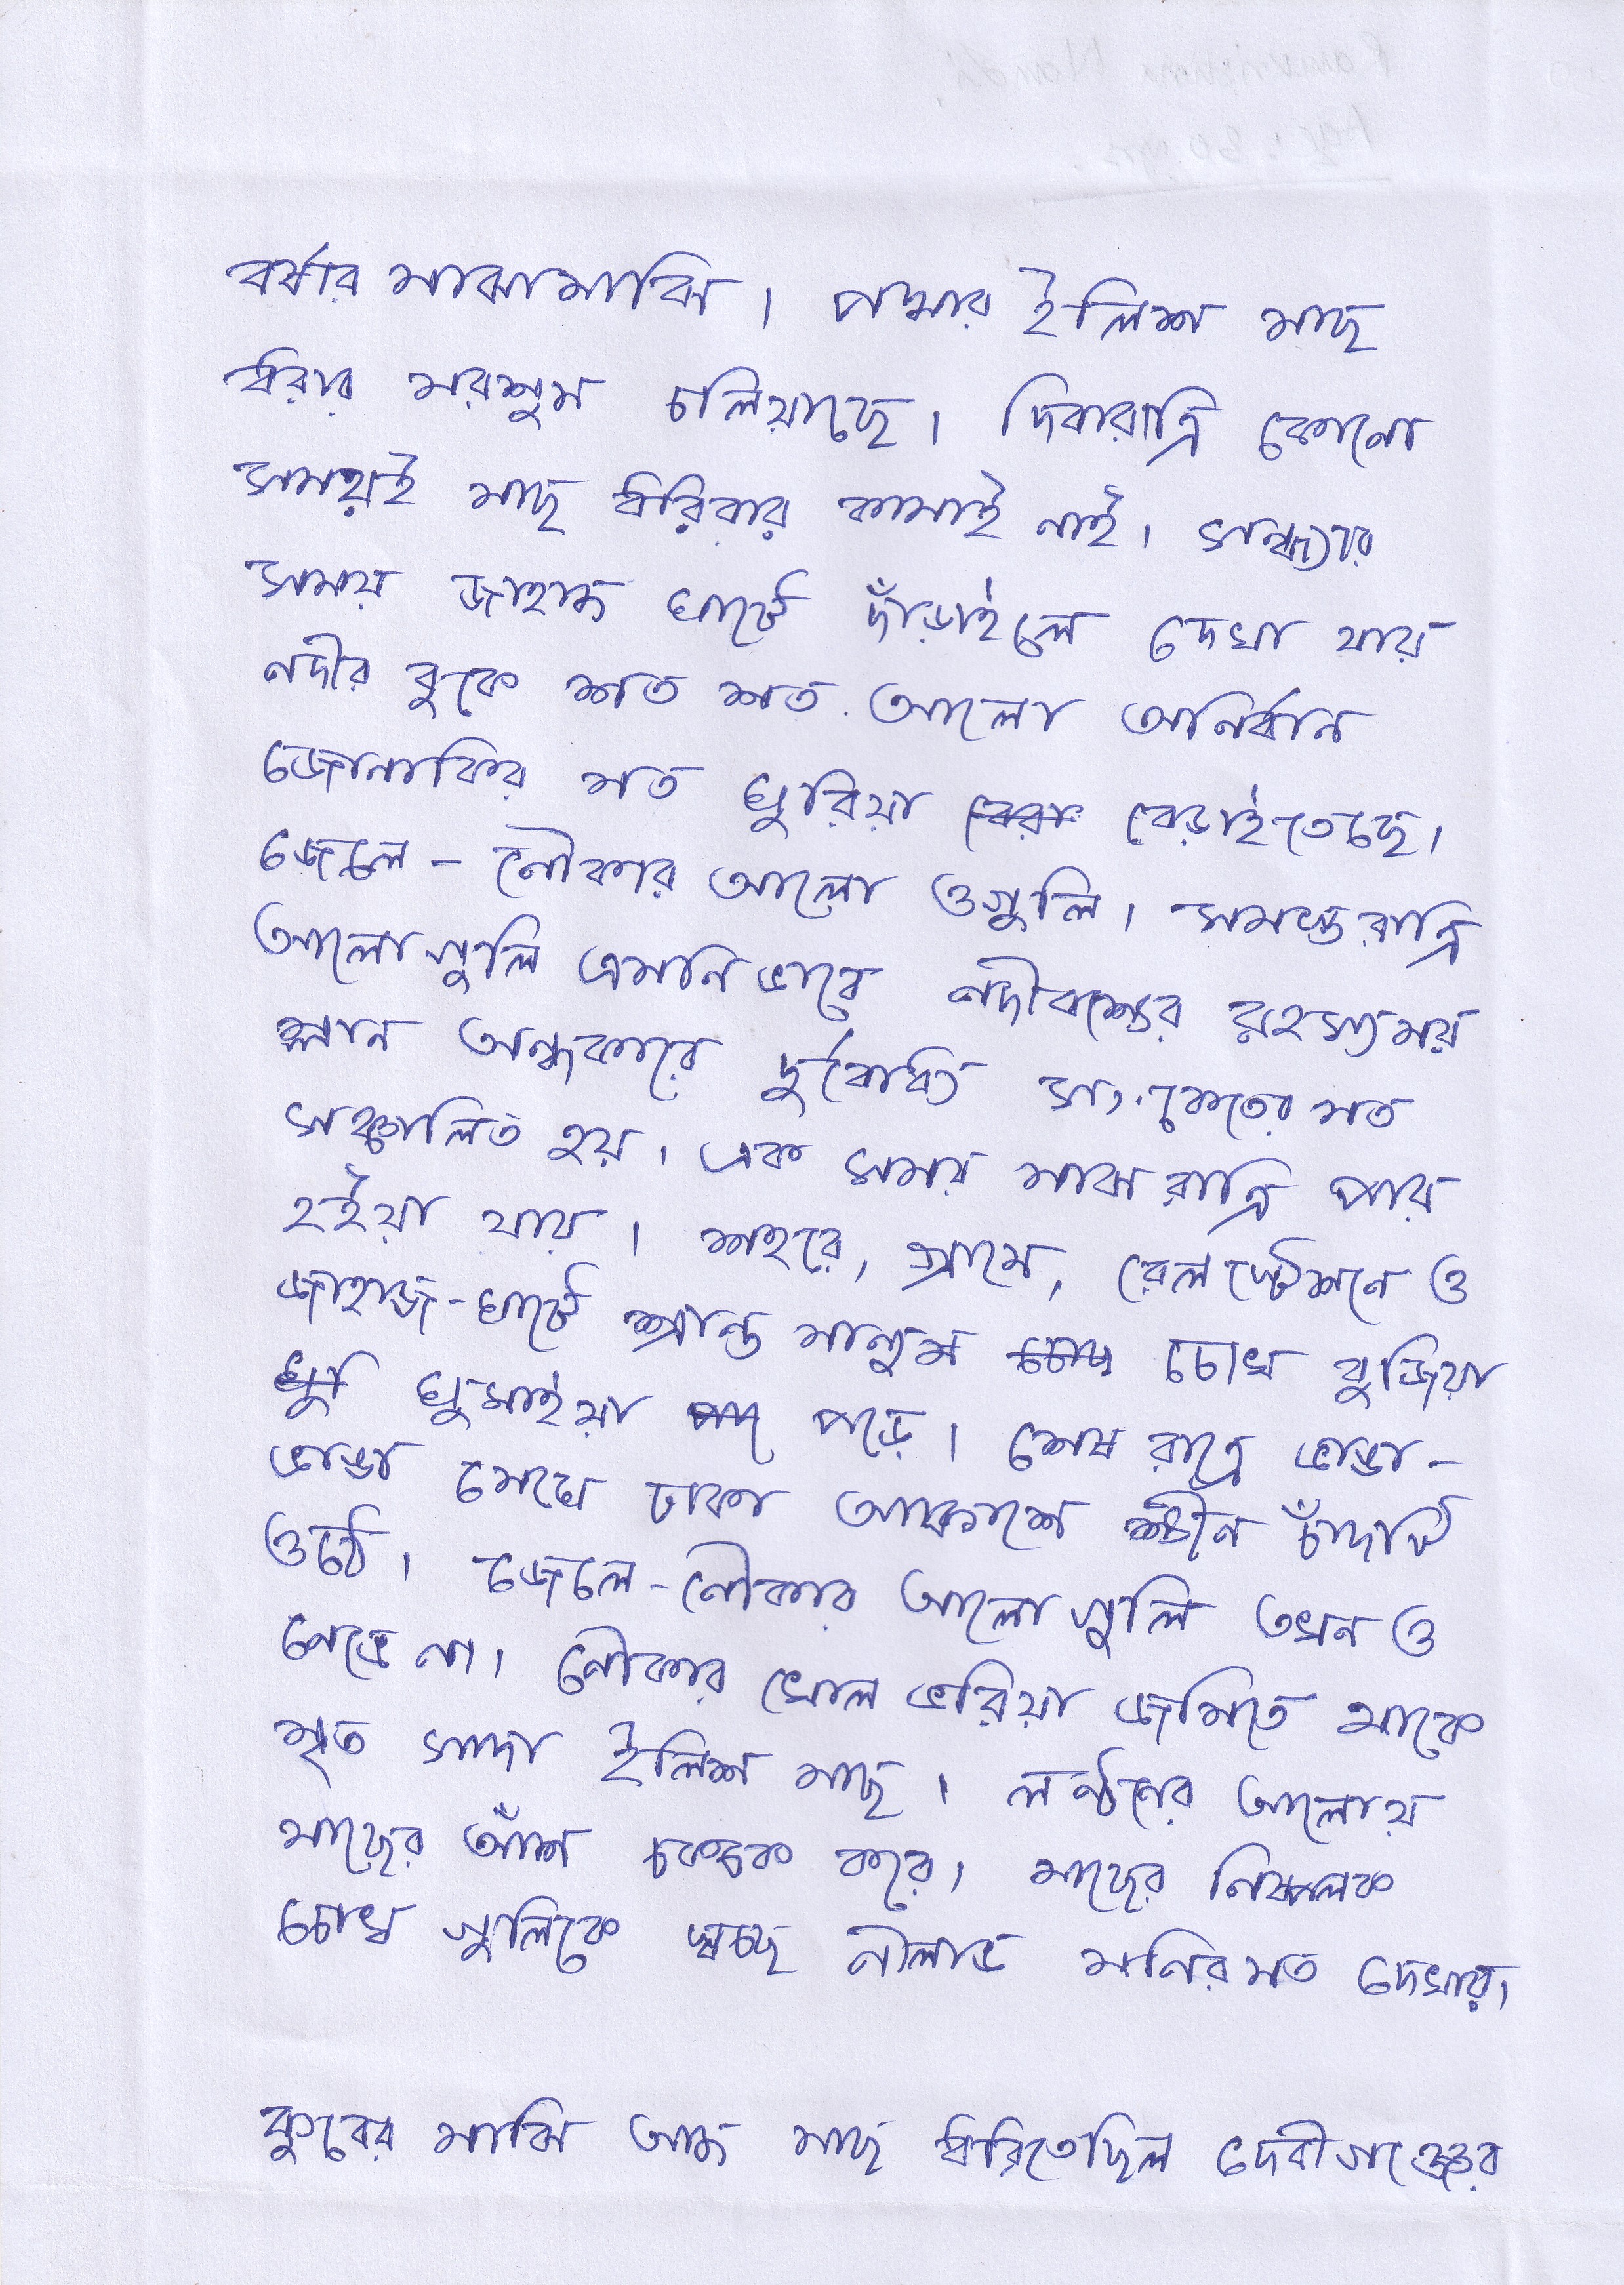 বর্ষার মাঝামাঝি। পদ্মার ইলিশ মাছ
ধরার মরশুম চলিয়াছে। দিবারাত্রি কোনো
সময়ই মাছ ধরিবার কামাই নাই। সন্ধ্যার
সময় জাহাজ ঘাটে দাঁড়াইলে দেখা যায়
নদীর বুকে শত শত আলো অনির্বান
জোনাকির মত ঘুরিয়া বেড়াইতেছে।
জেলে - নৌকার আলো ওগুলি। সমস্তরাত্রি
আলোগুলি এমনিভাবে নদীবক্ষের রহস্যময়
ম্লান অন্ধকারে দুর্বোধ্য সংকেতের মত
সঞ্চালিত হয়। এক সময় মাঝরাত্রি পার
হইয়া যায়। শহরে, গ্রামে, রেলস্টেশনে ও
জাহাজ-ঘাটে শ্রান্ত মানুষ চোখ বুজিয়া
ঘুমাইয়া পড়ে। শেষরাত্রে ভাঙা-
ভাঙা মেঘে ঢাকা আকাশে ক্ষীন চাঁদটি
ওঠে। জেলে-নৌকার আলোগুলি তখন ও
নেভে না। নৌকার খোল ভরিয়া জমিতে থাকে
মৃত সাদা ইলিশ মাছ। লন্ঠনের আলোয়
মাছের আঁশ চকচক করে। মাছের নিষ্পলক
চোখ গুলিকে স্বচ্ছ নীলাভ মনির মত দেখায়।
কুবের মাঝি আজ মাছ ধরিতেছিল দেবীগঞ্জের